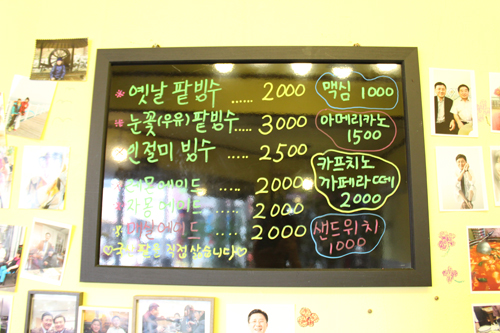 옛날 팥빙수 ...... 2000
눈꽃(우유)팥빙수..... 3000
인절미 빙수 ..... 2500
레몬에이드 ..... 2000
자몽에이드 ..... 2000
에이드 ..... 2000
♡국산팥을 직접 삶습니다♡
맥심 1000
아메리카노
1500
카프치노
까페라떼
2000
샌드위치
1000